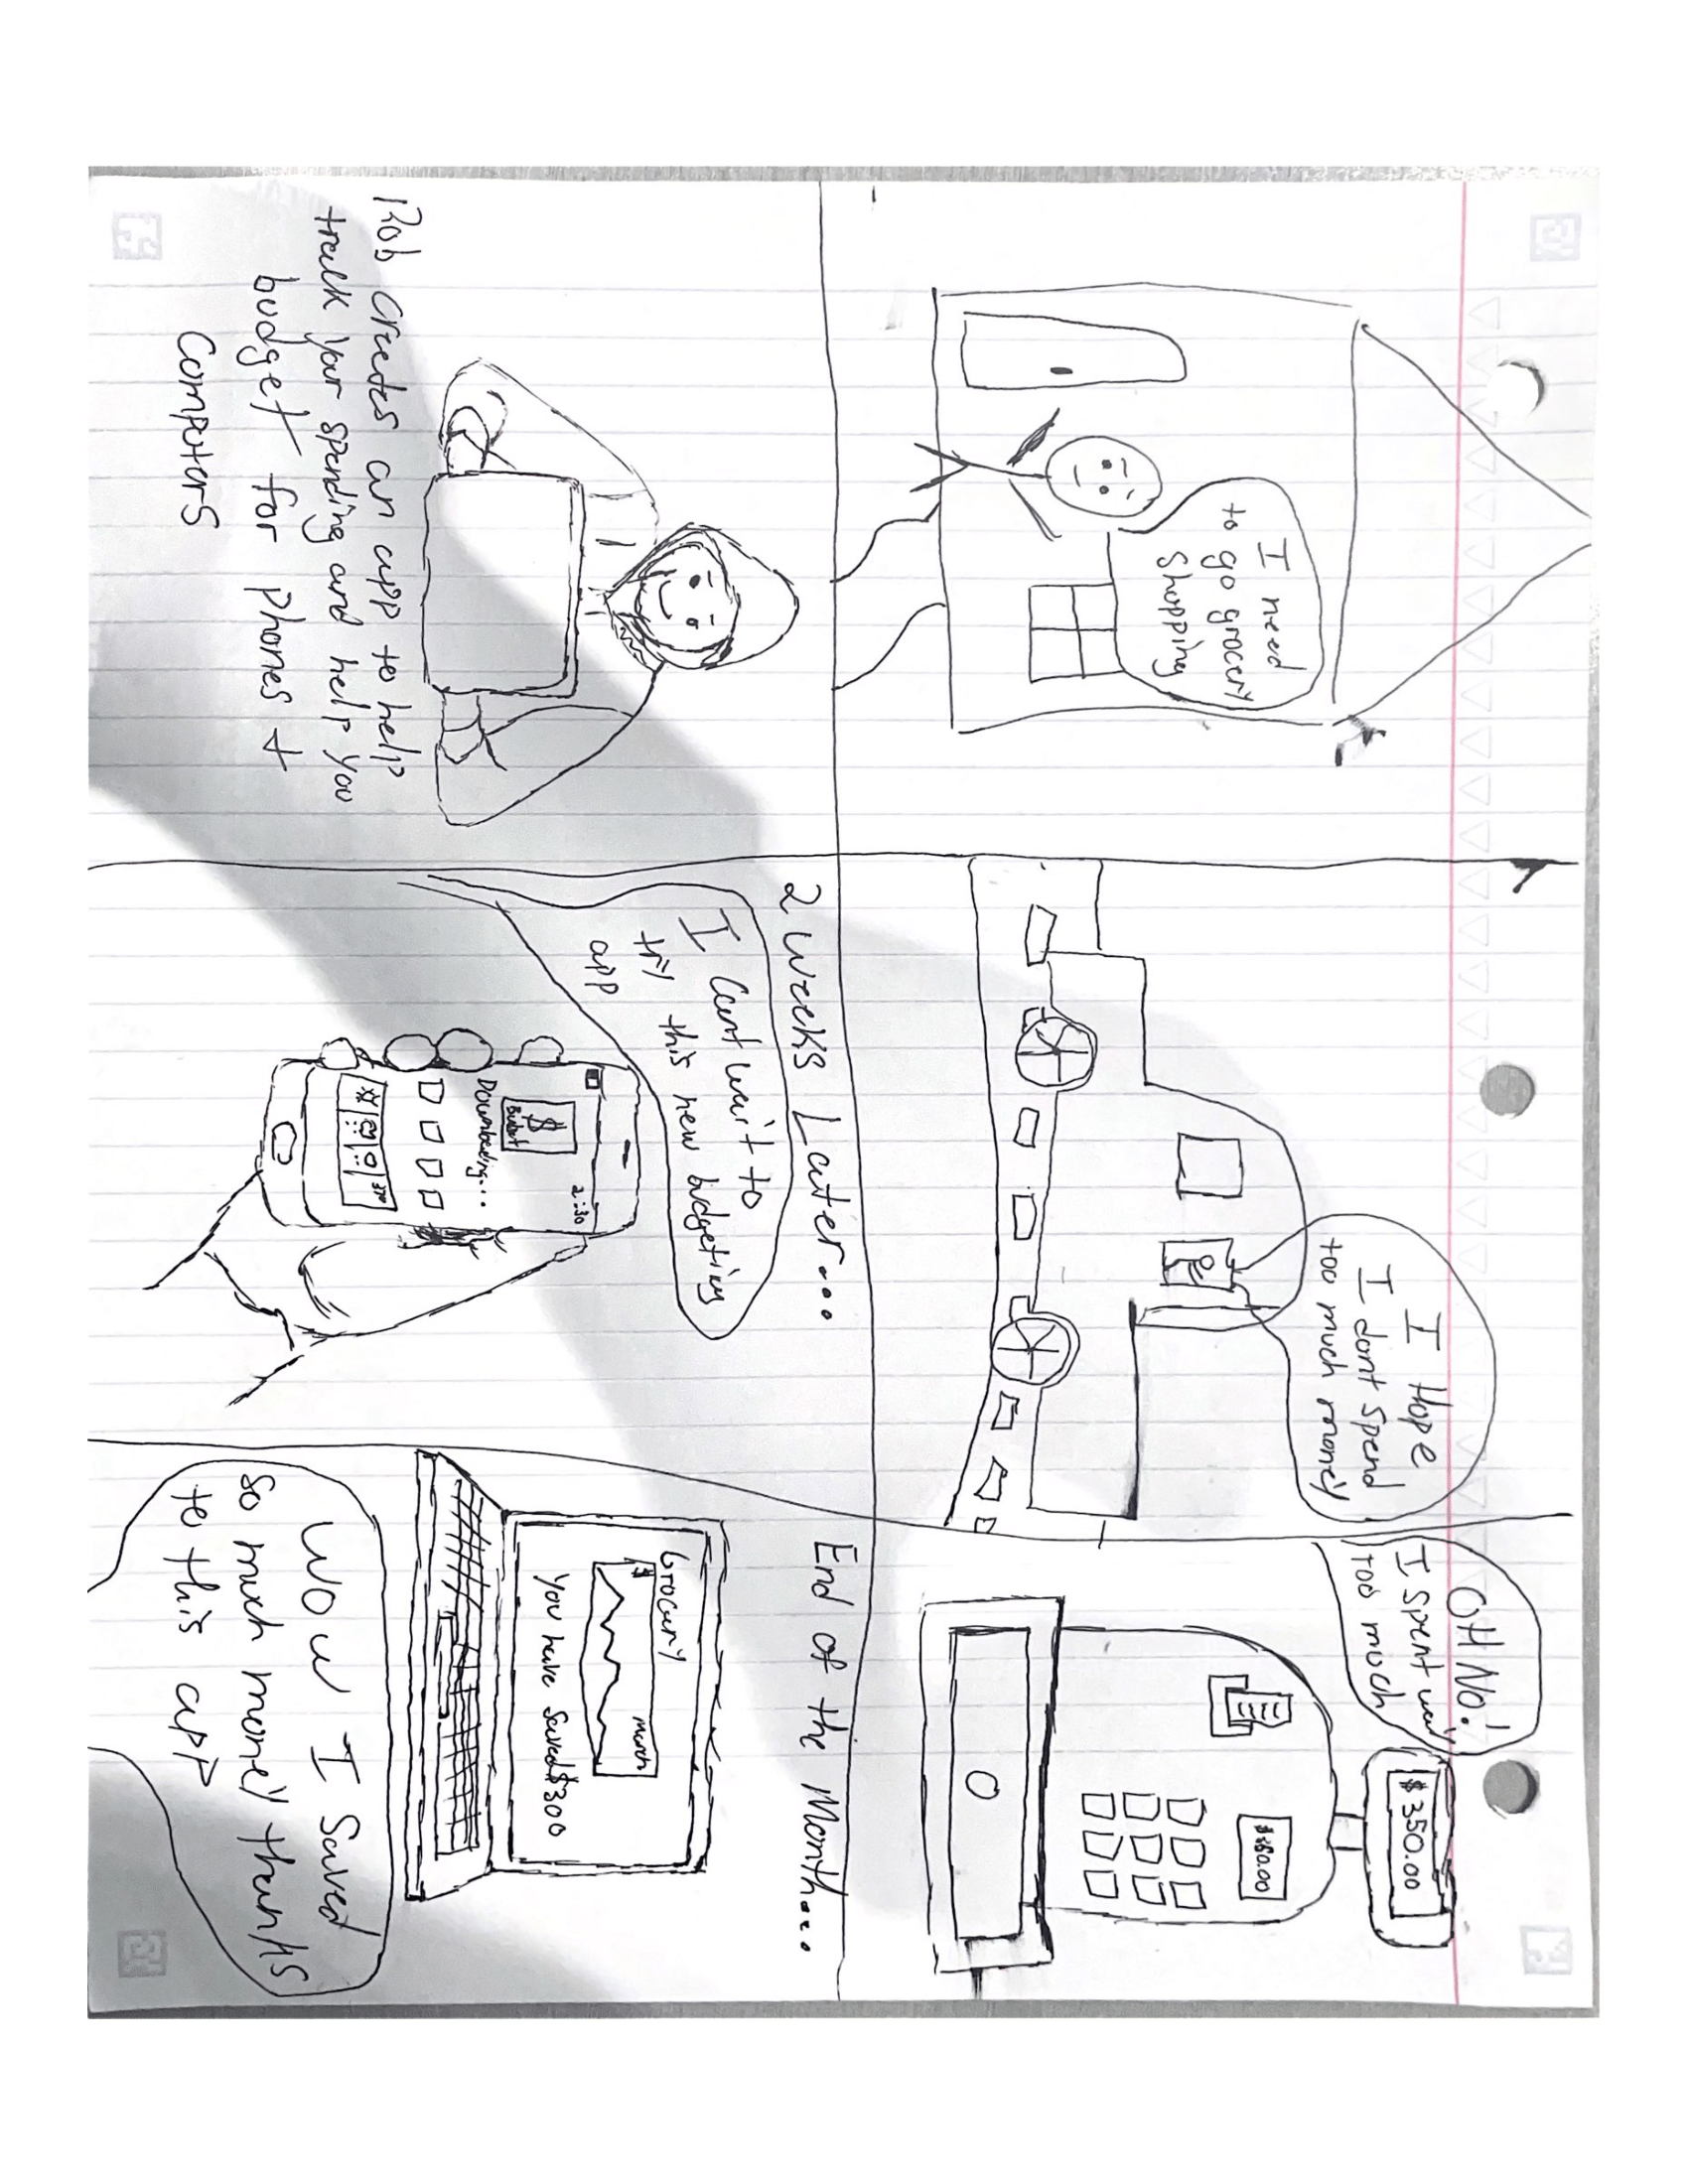 I need
to go grocery
Shopping
I Hope
I dont Spend
too much money
OH NO!
I spent way
too much
$350.00
Rob creates an app to help
track your spending and help you
budget for phones +
Computers
2 weeks Later...
I cant wait to
try this new budgeting
app
2:30
$
Downloading...
End of the Month...
Grocery
$
march
You have Saved $300
Wow I Saved
so much money thanks
to this app